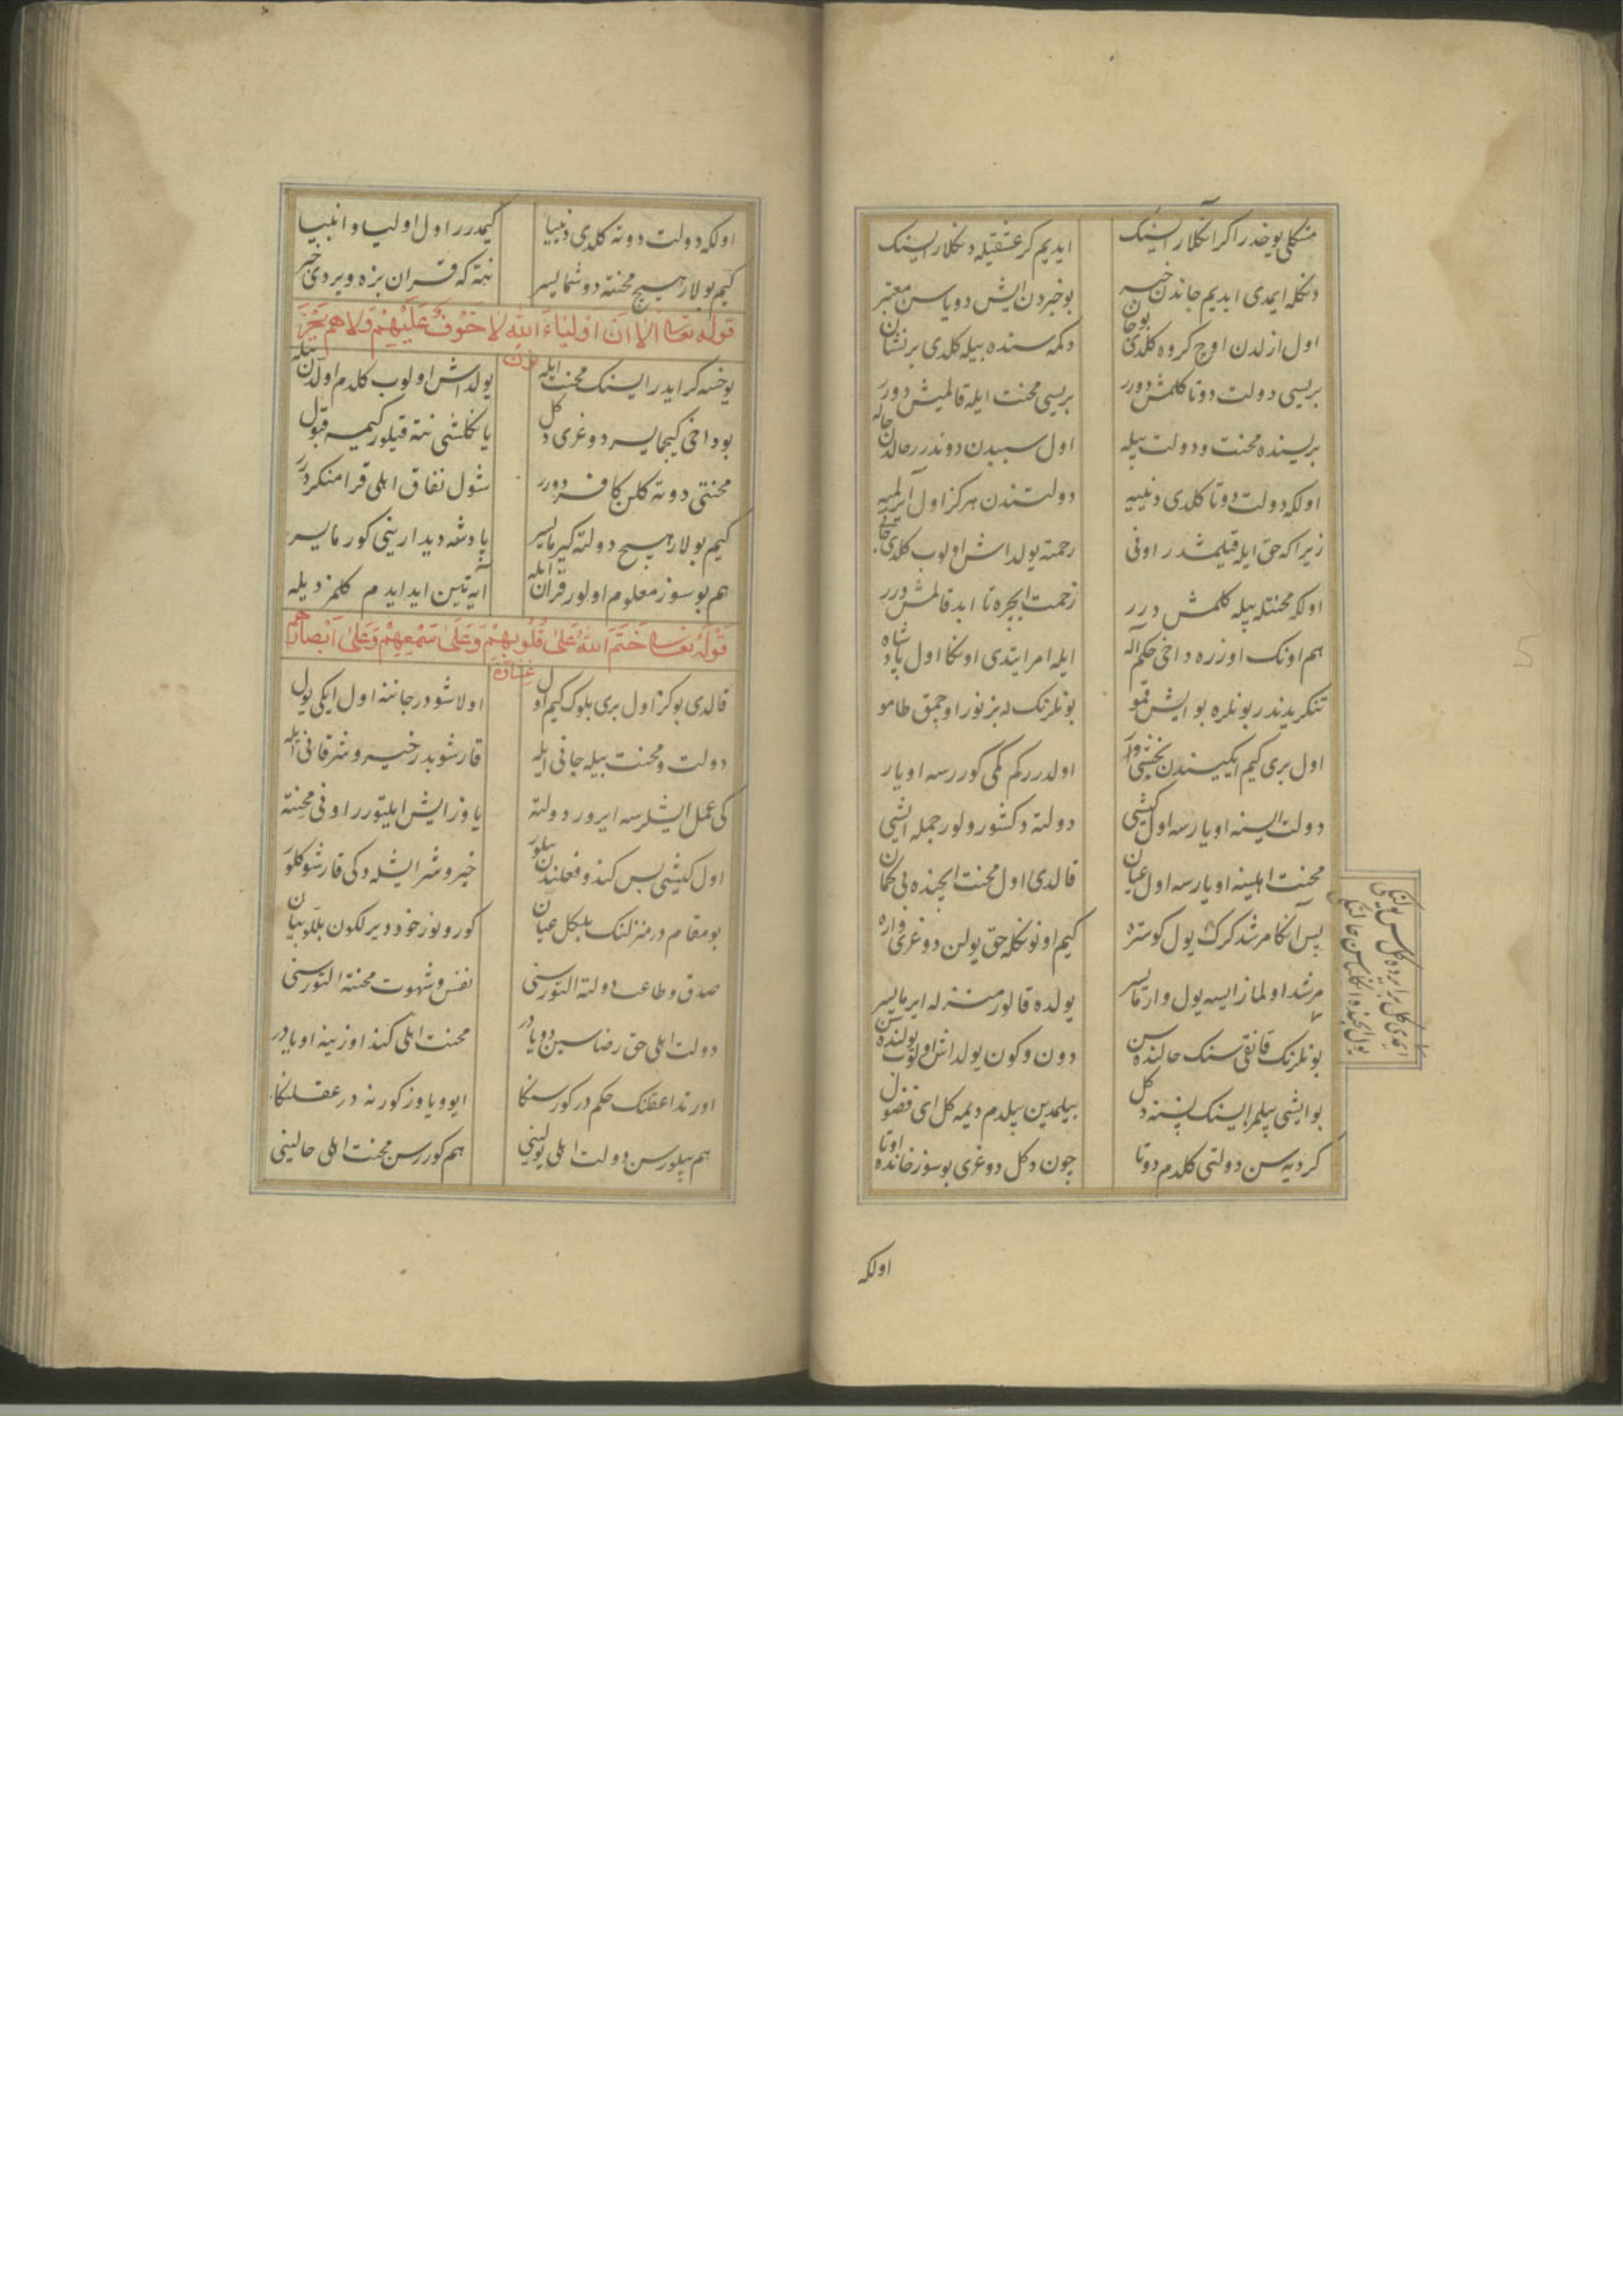 مشکلی یوخدر اکر انکلارایسنک ایدیم کر عشقیله دنکلارایسنک
دنکله ایمدی ایدیم جاندن خبر بو خبردن ایش دویاسن معتبر
اول ازلدن اوچ کروه کلدی بو جان دکمه سنده بیله کلدی بر نشان
بریسی دولت دوتا کلمش دورر بریسی محنت ایله قالمیش دورر
بریسنده محنت و دولت بیله اول سببدن دوندرر حالدن حاله
اولکه دولت دوتا کلدی دنییه دولتندن هرکز اول آیرلمیه
زیرا که حق ایله قیلمشدر اونی رحمته یولداش اولوب کلدی جانی
اولکه محنتله بیله کلمش درر زحمت ایچره تا ابد قالمش درر
هم اونک اوزره داخی حکم آله ایله امر ایتدی اونکا اول پادشاه
تنکریدندر بونلره بو ایش قمو بونلرنک له بزنور اوچمق طامو
اول بری کیم ایکیسندن بخشی وار اولدرر کم نکی کوررسه اویار
دولت ایسنه اویارسه اول کیشی دولته دکشورولور جمله ایشی
محنت اهلینه اویارسه اول عیان قالدی اول محنت ایچنده بی کمان
پس آنکا مرشد کرک یول کوستره کیم اونونکله حق یولن دوغری واره
مرشد اولماز ایسه یول وارمایسر یولده قالور منزله ایرمایسر
بونلرنک قانقی سنک حالنده سن دون و کون یولداش اولوب یولنده سن
بو ایشی بیلمزایسنک پسنه دکل بیلمدین بیلدم دیمه کل ای فضول
کر دیه سن دولتی کلدم دوتا چون دکل دوغری بو سوز خانده اوتا
اولکه
اولکه دولت دوته کلدی دنییا کیمدرر اول اولیا و انبیا
کیم بولار هیچ محنته دوشمایسر نته که قران بزه ویردی خبر
قوله تعالی الا ان اولیاء الله لا خوف علیهم ولا هم یحزنون
یوخسه کر ایدرایسنک محنت ایله یولداش اولوب کلدم اولدن بیله
بو داخی کیجایسر دوغری دکل یانکلشی نته قیلور کیمسه قبول
محنتی دوته کلن کافر دورر شول نفاق اهلی قرا منکر درر
کیم بولار هیچ دولته کیرمایسر پادشه دیدارینی کورمایسر
هم بو سوز معلوم اولور قران ایله آیه تین ایدایدم کلمز دیله
قوله تعالی ختم الله علی قلوبهم وعلی سمعهم وعلی ابصارهم غشاوة
قالدی بو کز اول بری بلوک کیم اول اولاشودر جاننه اول ایکی یول
دولت و محنت بیله جانی ایله قارشوبدر خیر و شر قانی ایله
کی عمل ایشلرسه ایرور دولته یاوز ایش ایلیتورر اونی محنته
اول کیشی پس کندو فعلندن بیلور خیر و شر ایشله دکی قارشو کلور
بو مقام در منزلنک بلکل عیان کورونوز خود دیرلکون بللو بیان
صدق و طاعت دولته ایلتور سنی نفس و شهوت محنته ایلتور سنی
دولت اهلی حق رضاسین دویادر محنت اهلی کند اوزینه اویادر
اورتدا عقلنک حکم در کورسنکا ایو و یاوز کورنه در عقلنکا
هم بیلورسن دولت اهلی یولینی هم کوررسن محنت اهلی حالینی